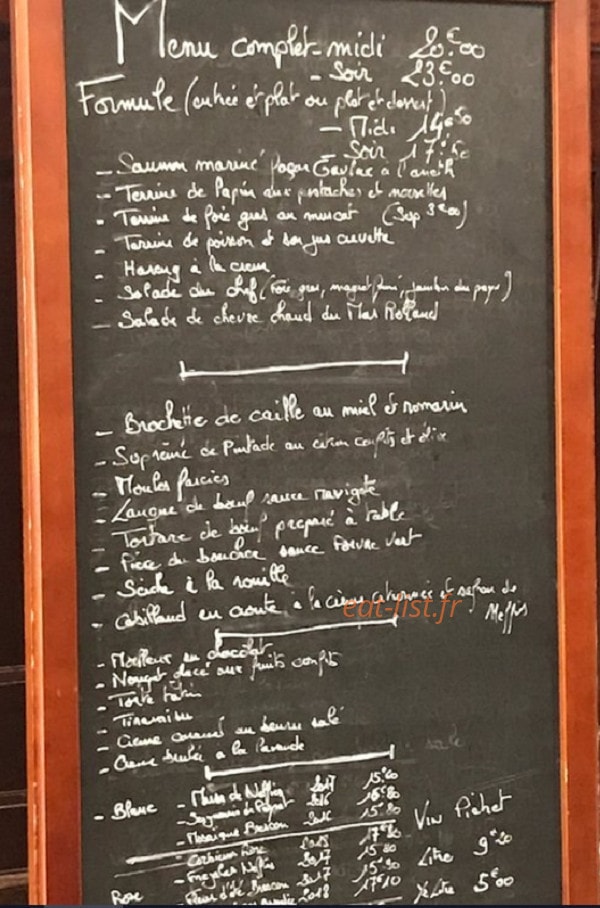 Menu complet-midi 20€00
- Soir 23€00
Formule (entrée et plat ou plat et dessert)
- Midi 14€50
Soir 17€50
- Saumon mariné façon Gravlax à l'aneth
- Terrine de lapin aux pistaches et noisettes
- Terrine de foie gras au muscat (Sup 3€00)
- Terrine de poisson et son jus crevette
- Hareng à la crème
- Salade du chef (Foie gras, magret fumé, jambon du pays)
- Salade de chevre chaud du Mas Rolland
- Brochette de caille au miel et romarin
- Suprême de Pintade au citron confits et olive
- Moules farcies
- Langue de bœuf sauce ravigote
- Tartare de bœuf préparé à table
- Pièce du boucher sauce Poivre vert
- Seiche à la rouille
- Cabillaud en croute, à la crème citronnée et safran de
Neffiès
eat-list.fr
- Moelleux au chocolat
- Nougat glacé aux fruits confits
- Tarte tatin
- Tiramisu
- Crème caramel au beurre salé
- Crème brulée a la Lavande
- Blanc - de Neffiès 2017
2016
- Mosaïque Brescou 2016
2018
2017
Brescou 2017
2018
Rose
Vin Pichet
Litre 9€
½ Litre 5€00